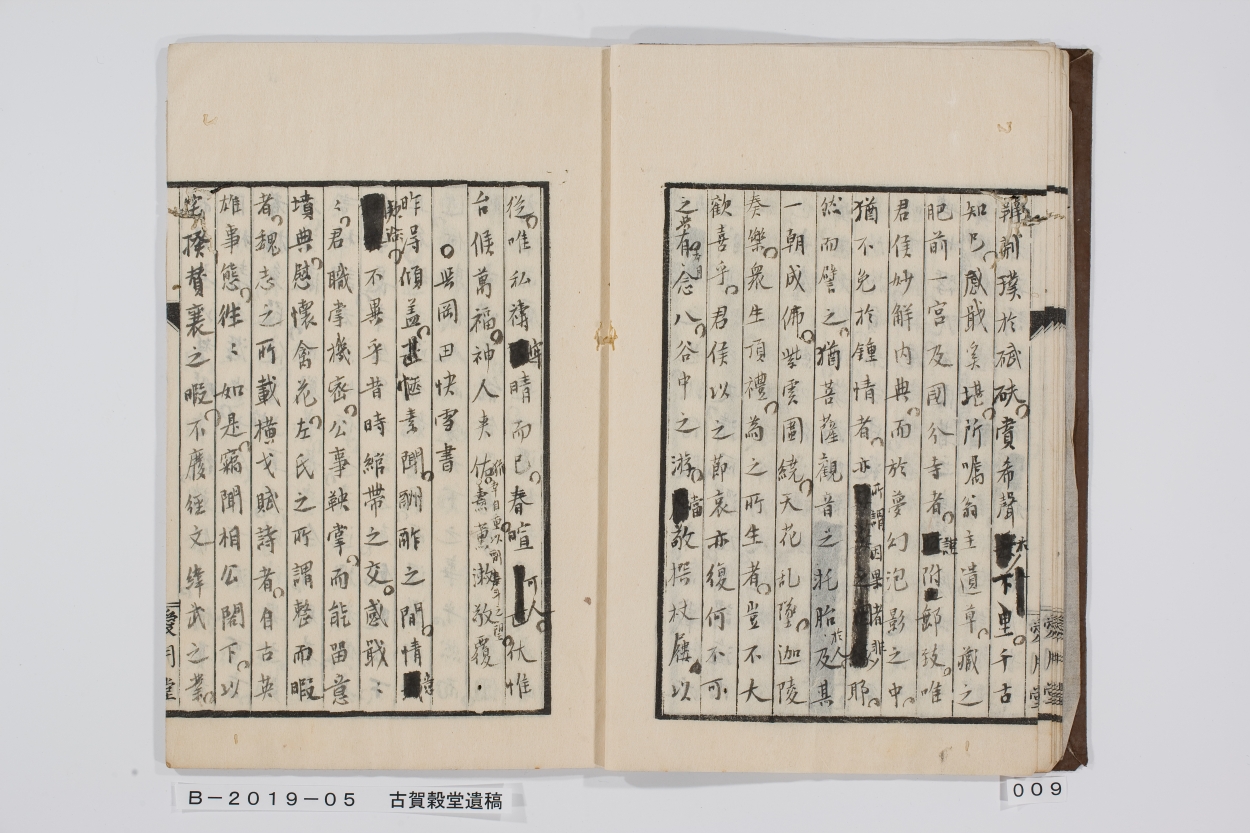 荊璞於砥砆。賣希聲下里。千古
知己。感戢奚堪。所嘱翁主遺草。藏之
肥前一宮及國分寺者。謹附郵致。唯
君侯妙解内典。而於夢幻泡影之中。
猶不免於鍾情者。亦所謂因果者非耶。
然而譬之。猶菩薩觀音之托胎於人。及其
一朝成佛。紫雲圍繞。天花乱墜。迦陵
奏樂。衆生頂禮。為之所生者。豈不大
歓喜乎。君侯以之節哀。亦復何不可
之有。念八谷中之游。當敬撰杖屨以
從。唯私禱晴而已。春暄可人。伏惟
台候萬福。神人夾佑。肅薫漱敬覆。
〇与岡田快雪書
昨得傾盖。甚愜素聞。酬酢之間。情意
不異乎昔時縮帶之交。感戢々
々。君職掌機密。公事鞅掌。而能留意
墳典。慰懷禽花。左氏之所謂整而暇
者。魏志之所載横戈賦詩者。自古英
雄事態。往々如是。竊聞相公閤下。以
揆賛襄之暇。不廢経文緯武之業。
愛月堂
愛月堂
B－2019－05　古賀穀堂遺稿
009